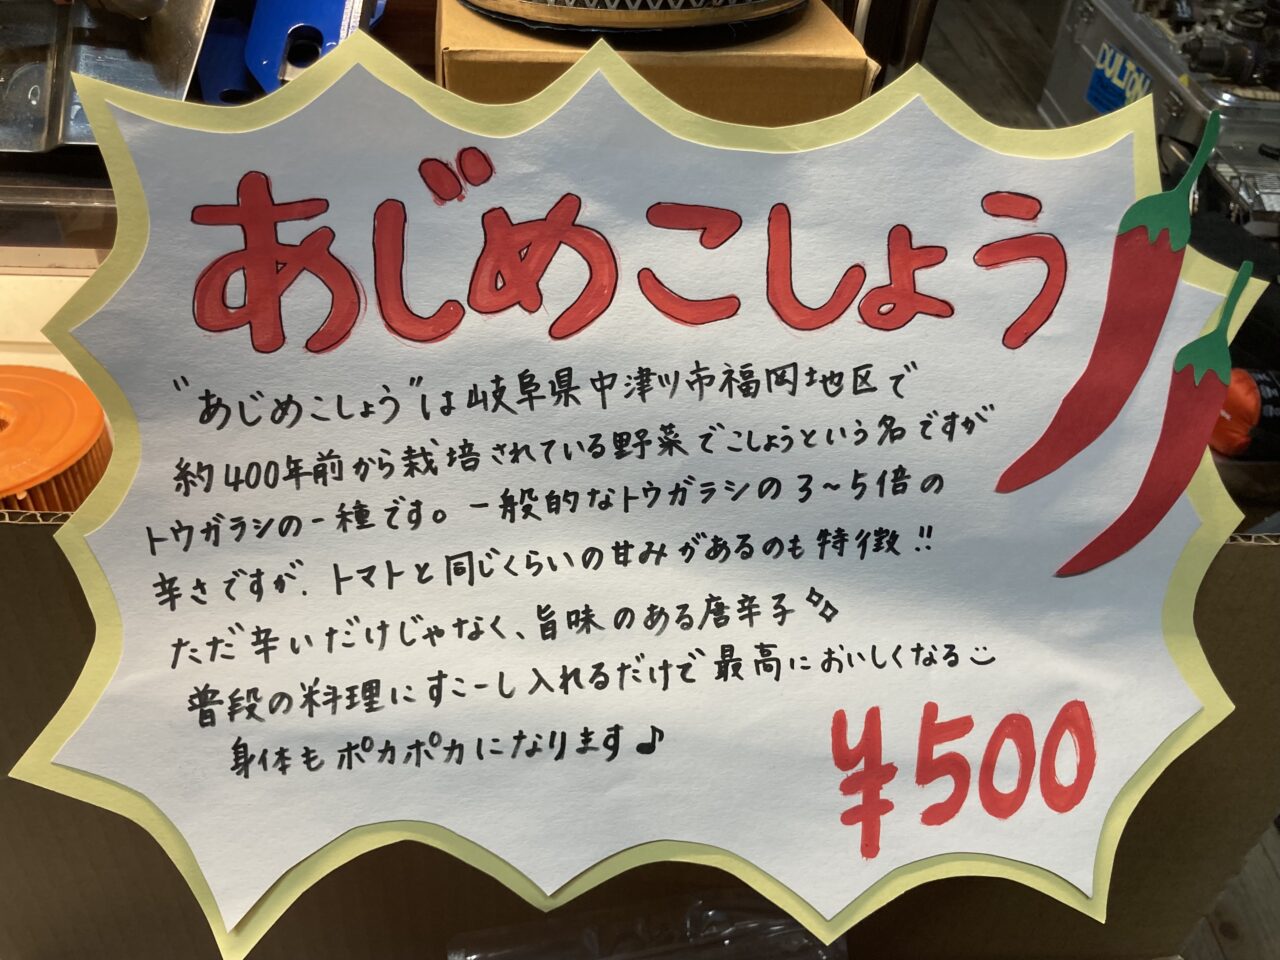 DULTON
あじめこしょう
"あじめこしょう"は岐阜県中津川市福岡地区で
約400年前から栽培されている野菜でこしょうという名ですが
トウガラシの一種です。一般的なトウガラシの3～5倍の
辛さですが、トマトと同じくらいの甘みがあるのも特徴!!
ただ辛いだけじゃなく、旨味のある唐辛子
普段の料理にすこーし入れるだけで最高においしくなる
身体もポカポカになります♪
¥500